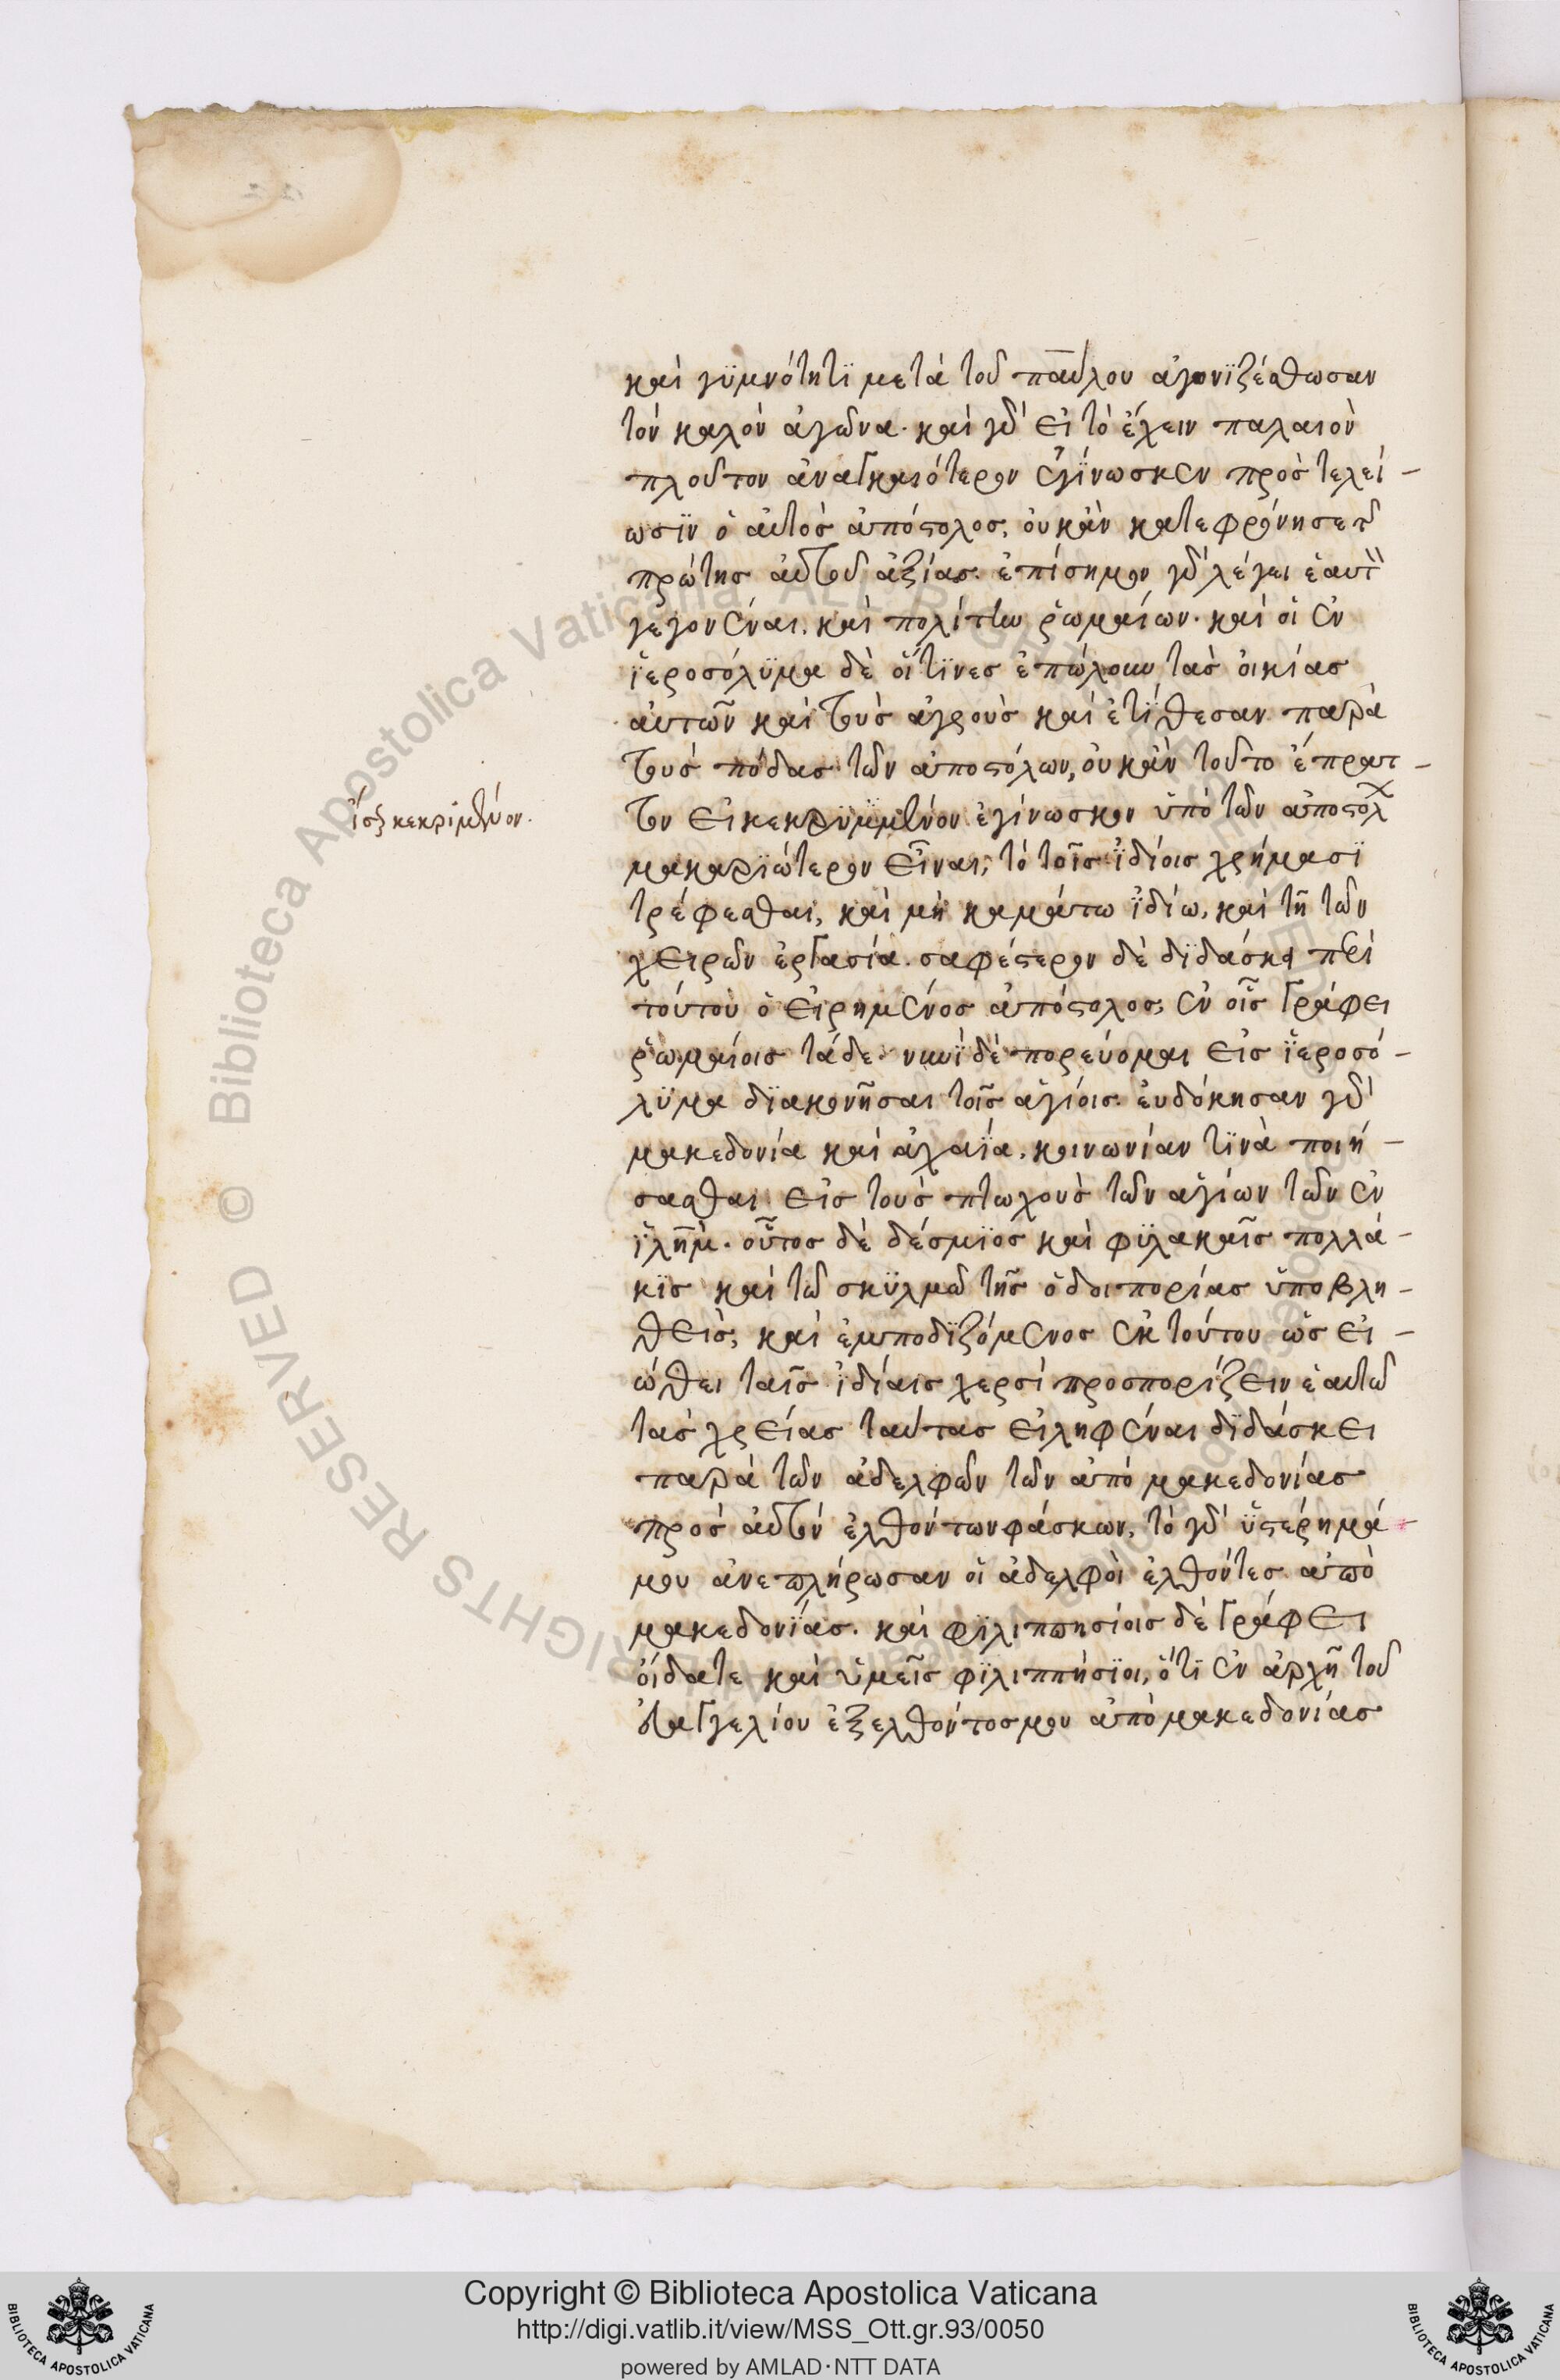 καὶ γϋμνότητϊ μετὰ τοῦ παύλου ἀγωνϊζέσθωσαν
τὸν καλὸν ἀγῶνα· καὶ γὰρ εἰ τὸ ἔχειν παλαιὸν
πλοῦτον ἀναγκαιότερον ἐγίνωσκεν πρὸς τελεί-
ωσϊν ὁ αὐτὸς ἀπόστολος, οὐκ ἂν κατεφρόνησε τ
πρώτης αὐτοῦ ἀξίας. ἐπίσημον γὰρ λέγει ἑαυτὸν
γεγονέναι. καὶ πολίτην ῥωμαίων· καὶ οἱ ἐν
ἱεροσόλϋμα δὲ οἵτϊνες ἐπώλουν τὰς οἰκίας
αὐτῶν καὶ τοὺς ἀγροὺς καὶ ἐτίθεσαν παρὰ
τοὺς πόδας τῶν ἀποστόλων, οὐκ ἂν τοῦτο ἔπρατ-
τον εἰ κεκρϋμμένον ἐγίνωσκον ὑπὸ τῶν ἀποστόλ
ἴσ κεκριμένον.
μακαρϊώτερον εἶναι, τὸ τοῖς ἰδίοις χρήμασϊ
τρέφεσθαι, καὶ μὴ καμάτω ἰδίω, καὶ τῆ τῶν
χειρῶν ἐργασία. σαφέστερον δὲ δϊδάσκει περὶ
τούτου ὁ εἰρημένος ἀπόστολος, ἐν οἷς γράφει
ῥωμαίοις τάδε· νυνῒ δὲ πορεύομαι εἰς ἱεροσό-
λϋμα δϊακονῆσαι τοῖς ἁγίοις. ἐυδόκησαν γὰρ
μακεδονία καὶ ἀχαΐα, κοινωνίαν τϊνὰ ποιή-
σασθαι εἰς τοὺς πτωχοὺς τῶν ἁγίων τῶν ἐν
ἱλημ. οὗτος δὲ δέσμϊος καὶ φϋλακαῖς πολλά-
κϊς καὶ τῶ σκϋλμῶ τῆς ὁδοιπορίας ὑποβλη-
θεὶς, καὶ ἐμποδϊζόμενος ἐκ τούτου ὡς εἰ-
ώθει ταῖς ἰδίαις χερσὶ προσπορίζειν ἑαυτῶ
τὰς χρείας ταύτας εἰληφέναι δϊδάσκει
παρὰ τῶν ἀδελφῶν τῶν ἀπὸ μακεδονίας
πρὸς αὐτὸν ἐλθόντων φάσκων, τὸ γὰρ ὑστέρημά-
μου ἀνεπλήρωσαν οἱ ἀδελφοὶ ἐλθόντες ἀπὸ
μακεδονΐας. καὶ φϊλιππησίοις δὲ γράφει
οἴδατε καὶ ὑμεῖς φϊλιππήσϊοι, ὅτϊ ἐν ἀρχῆ τοῦ
εὐαγγελίου ἐξελθόντος μου ἀπὸ μακεδονίας
Copyright © Biblioteca Apostolica Vaticana
http://digi.vatlib.it/view/MSS_Ott.gr.93/0050
powered by AMLAD·NTT DATA
BIBLIOTECA APOSTOLICA VATICANA
BIBLIOTECA APOSTOLICA VATICANA